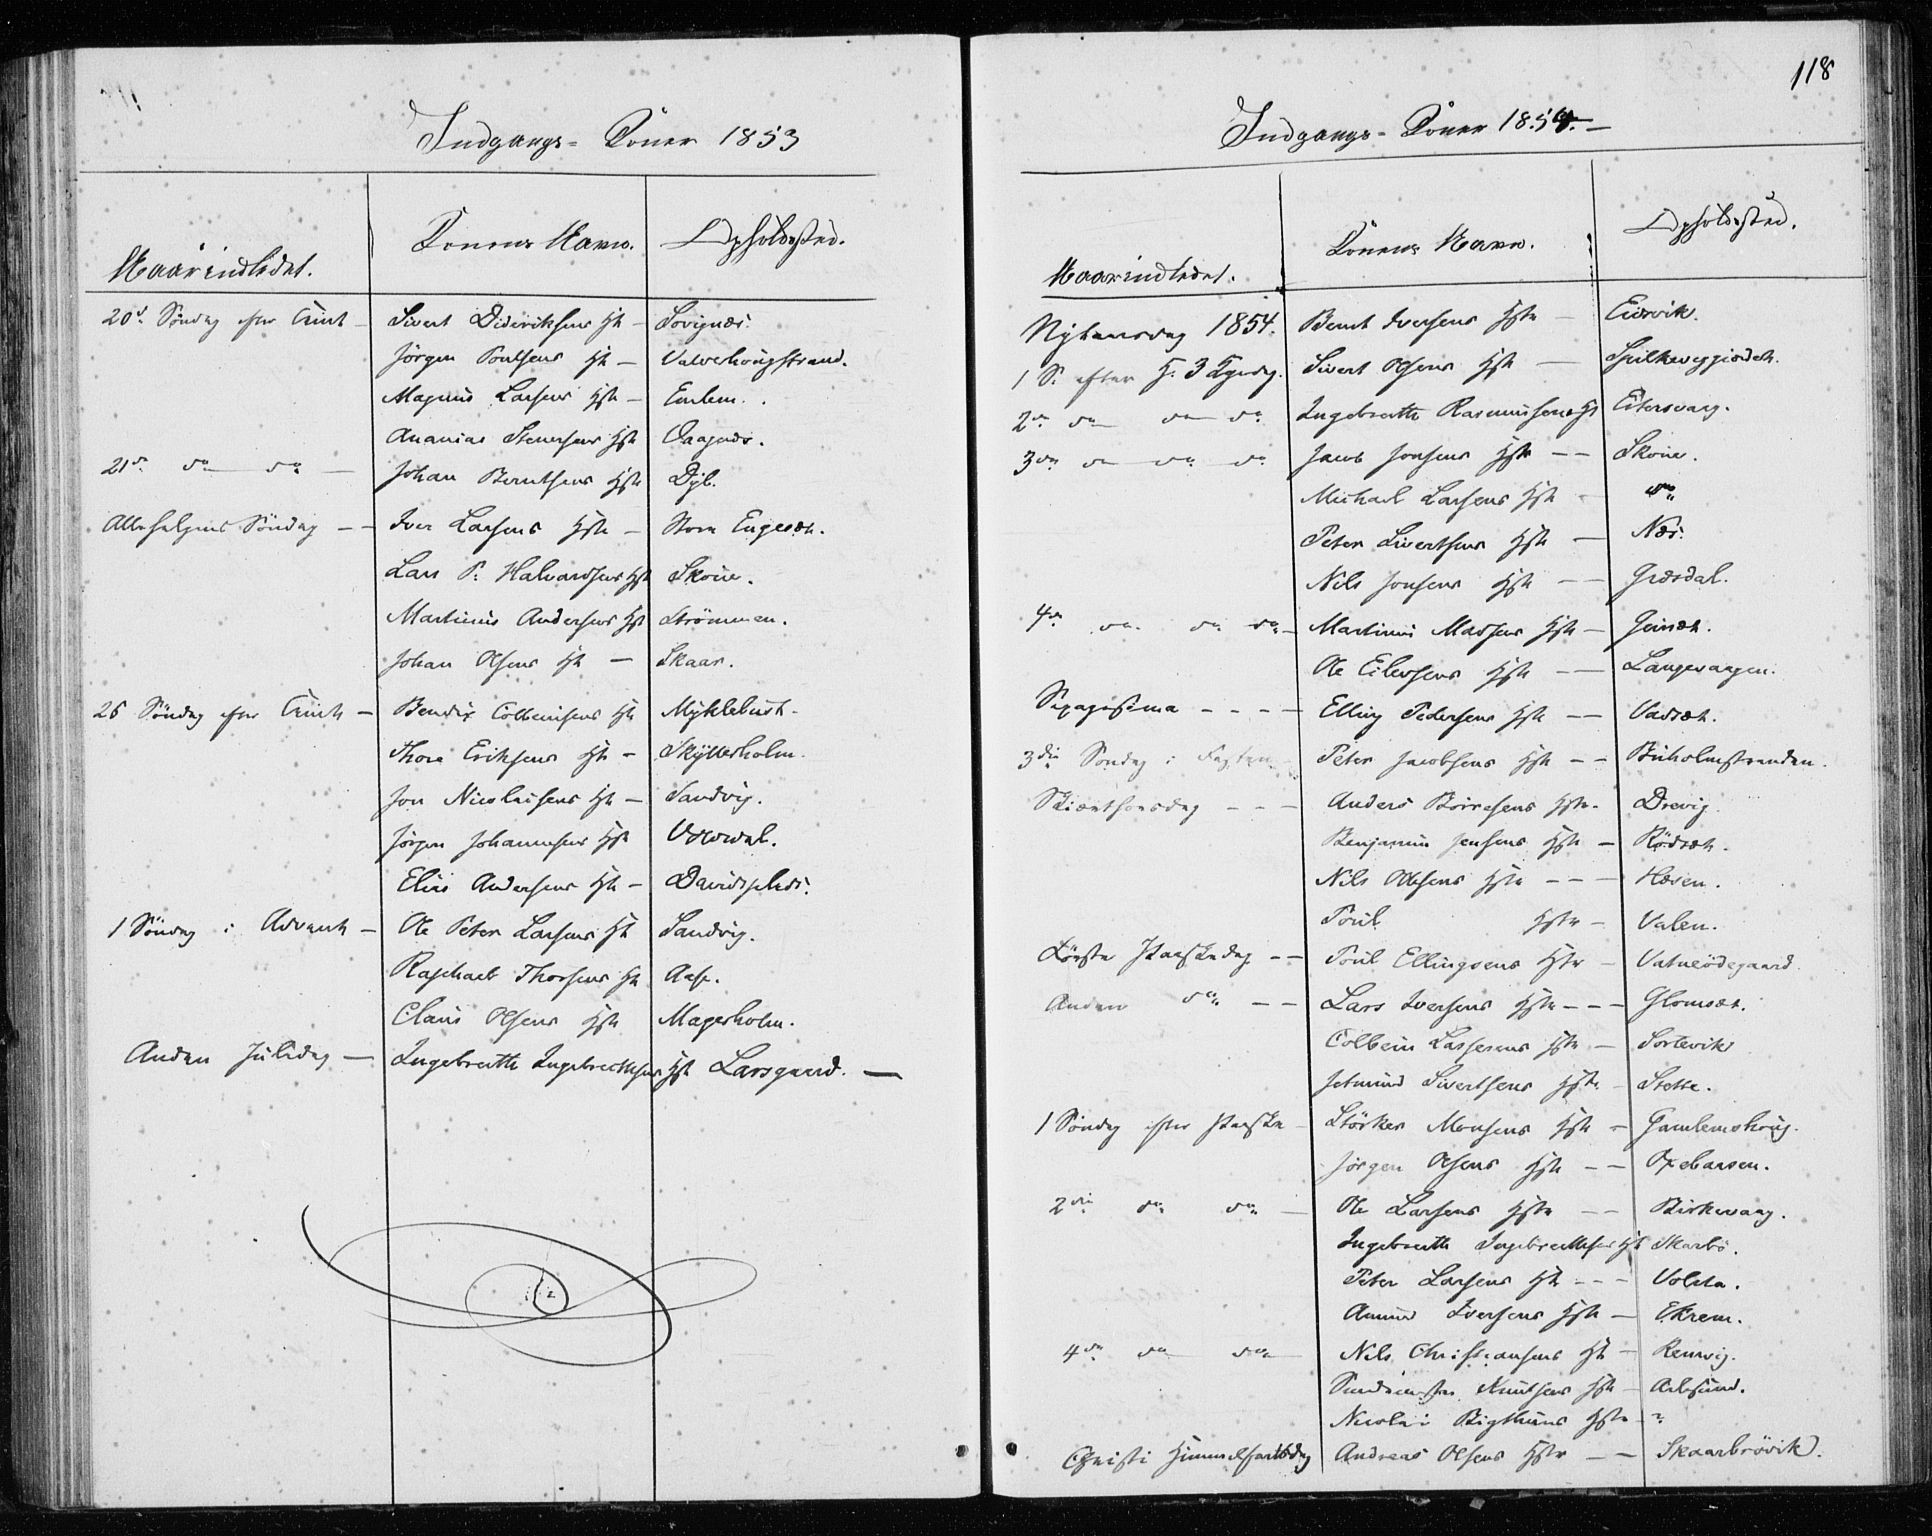 Indgangs-Koner 1853
Naar indledet. Konens Navn. Opholdssted.
20d. Søndag efter Trinit – Sivert Dideriksens Hst – Sovignæs.
Jørgen Poulsens Hst – Valderhougstrand.
Magnus Larsens Hst – Emlem.
Ananias Stenersens Hst Qvagnæs.
21de do do – Johan Berntsens Hst Dyb.
Allehelgens Søndag – – Iver Larsens Hst – Store Engesæt.
Lars P. Halvardsens Hst Skoue.
Martinus Andersens Hst Strømmen.
Johan Olsens Hst – Skaar.
26 Søndag efter Trinit – Bendix Colbeinsens Hst Myklebust.
Thore Eriksens Hst – Skytterholm.
Jon Nicolaisens Hst – Sandvig.
Jørgen Johannesens Hst
Elias Andersens Hst – Davidspleds.
1 Søndag i Advent – Ole Peter Larsens Hst Sandvig.
Raphael Thorsens Hst Aase.
Claus Olsens Hst Magerholm.
Anden Juledag – Ingebreth Ingebrethsens Hst Larsgaard. –
118
Indgangs-Koner 1854. –
Naar indledet. Konens Navn. Opholdssted.
Nytaarsdag 1854. Bernt Iversens Hstr – Eidsvik.
1 S. efter H. 3 Kgrdg. Sivert Olsens Hstr – Spilkeveggiødet.
2de do do do Ingebreth Rasmussens Hst Eitersvaag.
3die do do do Jacob Jonsens Hstr – – Skoue.
Michael Larsens Hst – do
Peter Sivertsens Hst – Næs.
Nils Jonsens Hst – – Græsdal.
4de do do do – Martinus Madsens Hst – Geissæt.
Ole Eilertsens Hst – – Langevaagen.
Sexagesima – – – – Elling Pedersens Hst – – Vadsæt.
3die Søndag i Fasten Peter Jacobsens Hst – – Buholmstranden.
Skiærthorsdag – – – Anders Børresens Hstr – Drevig.
Benjamin Jensens Hst – Rødsæt.
Nils Olsens Hstr – – – Hæsen.
Poul Hstr – Valen.
Første Paaskedag – – Poul Ellingsens Hstr – Vatneødegaard.
Anden do – – Lars Iversens Hstr – – – Glomsæt.
Colbein Lassesens Hstr – Sortevik.
Jetmund Sivertsens Hstr – Stette.
1 Søndag efter Paaske – Størker Monsens Hst – Gamlemshoug.
Jørgen Olsens Hst – – Oxebaasen.
2den do do – Ole Larsens Hstr – – Birkevaag.
Ingebreth Ingebrethsens Hst Skarbø.
Peter Larsens Hst – – – Volsta.
Amund Iversens Hst – Ekrem.
4de do do – Nils Christiansens Hst – Remvig.
Knutsens Hst – Aalesund.
Nicolai Bigthuns Hstr – "
Christi Himmelfartsdag Andreas Olsens Hstr – – Skaarbrøvik.